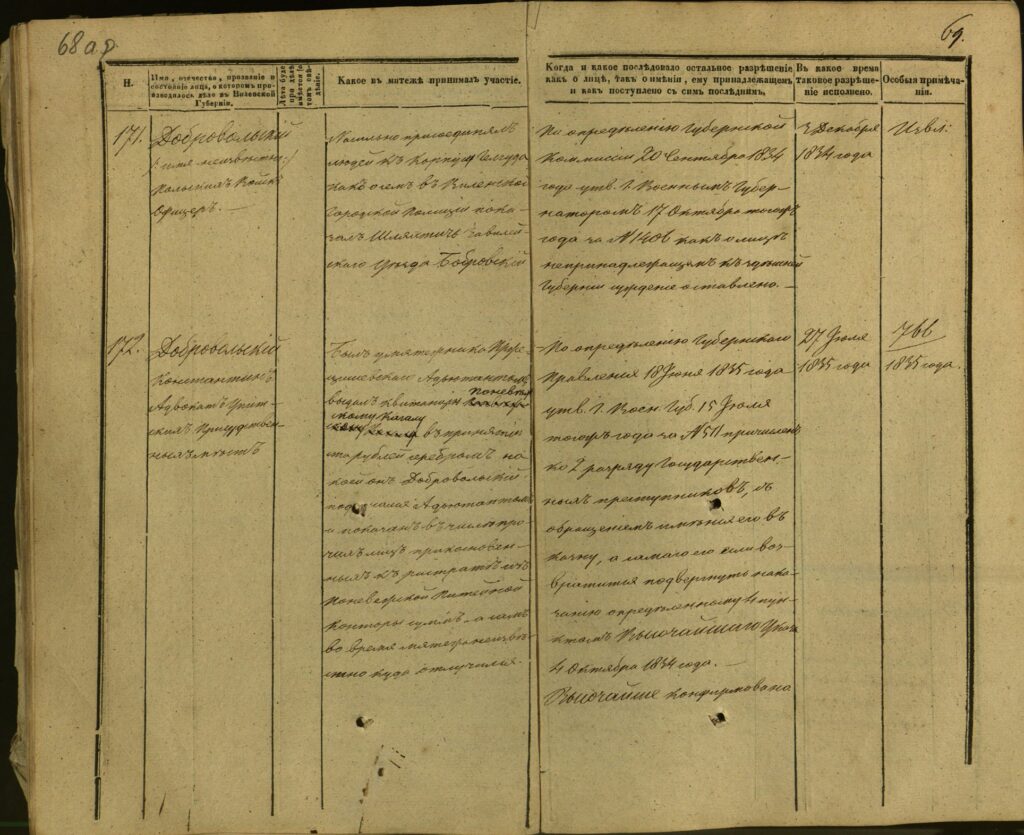 68 а.р.
69.
Н.
Имя, отечество, прозваніе и
состояніе лица, о которомъ про-
изводилось дѣло въ Виленской
Губерніи.
Дѣти буде
при дѣлѣ
имѣется о
томъ свѣ-
дѣніе.
Какое въ мятежѣ принималъ участіе.
Когда и какое послѣдовало остальное разрѣшеніе
какъ о лицѣ, такъ о имѣніи, ему принадлежащемъ
и какъ поступлено съ симъ послѣднимъ,
Въ какое время
таковое разрѣше-
ніе исполнено.
Особыя примѣча-
нія.
171.
Добровольскій
/: имя неизвѣстно :/
Польскихъ Войскъ
Офицеръ. —
Насильно присоединялъ
людей къ корпусу Гелгуда
какъ о семъ въ Виленской
Городской Полиціи пока-
залъ Шляхтичь Завилей-
скаго Уѣзда Бобровскій
По опредѣленію Губернской
Коммисіи 20 Сентября 1834
года утв. Г. Военнымъ Губер-
наторомъ 17 Октября тогожъ
года за N 1406 какъ о лицѣ
непринадлежащемъ къ здѣшней
Губерніи сужденіе оставлено. —
3 Декабря
1834 года
172.
Добровольскій
Константинъ
Адвокатъ Упит-
скихъ Присудствен-
ныхъ мѣстъ
Былъ у мятежника
Адъютантомъ
выдалъ квитанцію Поневѣж-
скому Кагалу
въ принятіи
ста рублей серебромъ на
коей онъ Добровольскій
подписался Адъютантомъ
и показанъ въ числѣ про-
чихъ лицъ прикосновен-
ныхъ къ растратѣ изъ
Поневежской Питейной
конторы суммъ, а самъ
во время мятежа неизвѣ-
стно куда отлучился.
По опредѣленію Губернскаго
Правленія 18 Іюня 1835 года
утв. Г. Воен. Губ. 15 Іюля
тогожъ года за N 511 причисленъ
ко 2 разряду Государствен-
ныхъ преступниковъ, съ
обращеніемъ имѣнія его въ
казну, а самаго его если воз-
вратится подвергнуть нака-
занію опредѣленному 4 пун-
ктомъ Высочайшаго Указа
4 Октября 1834 года. —
Высочайше конфирмовано
27 Іюля
1835 года
766
1835 года.